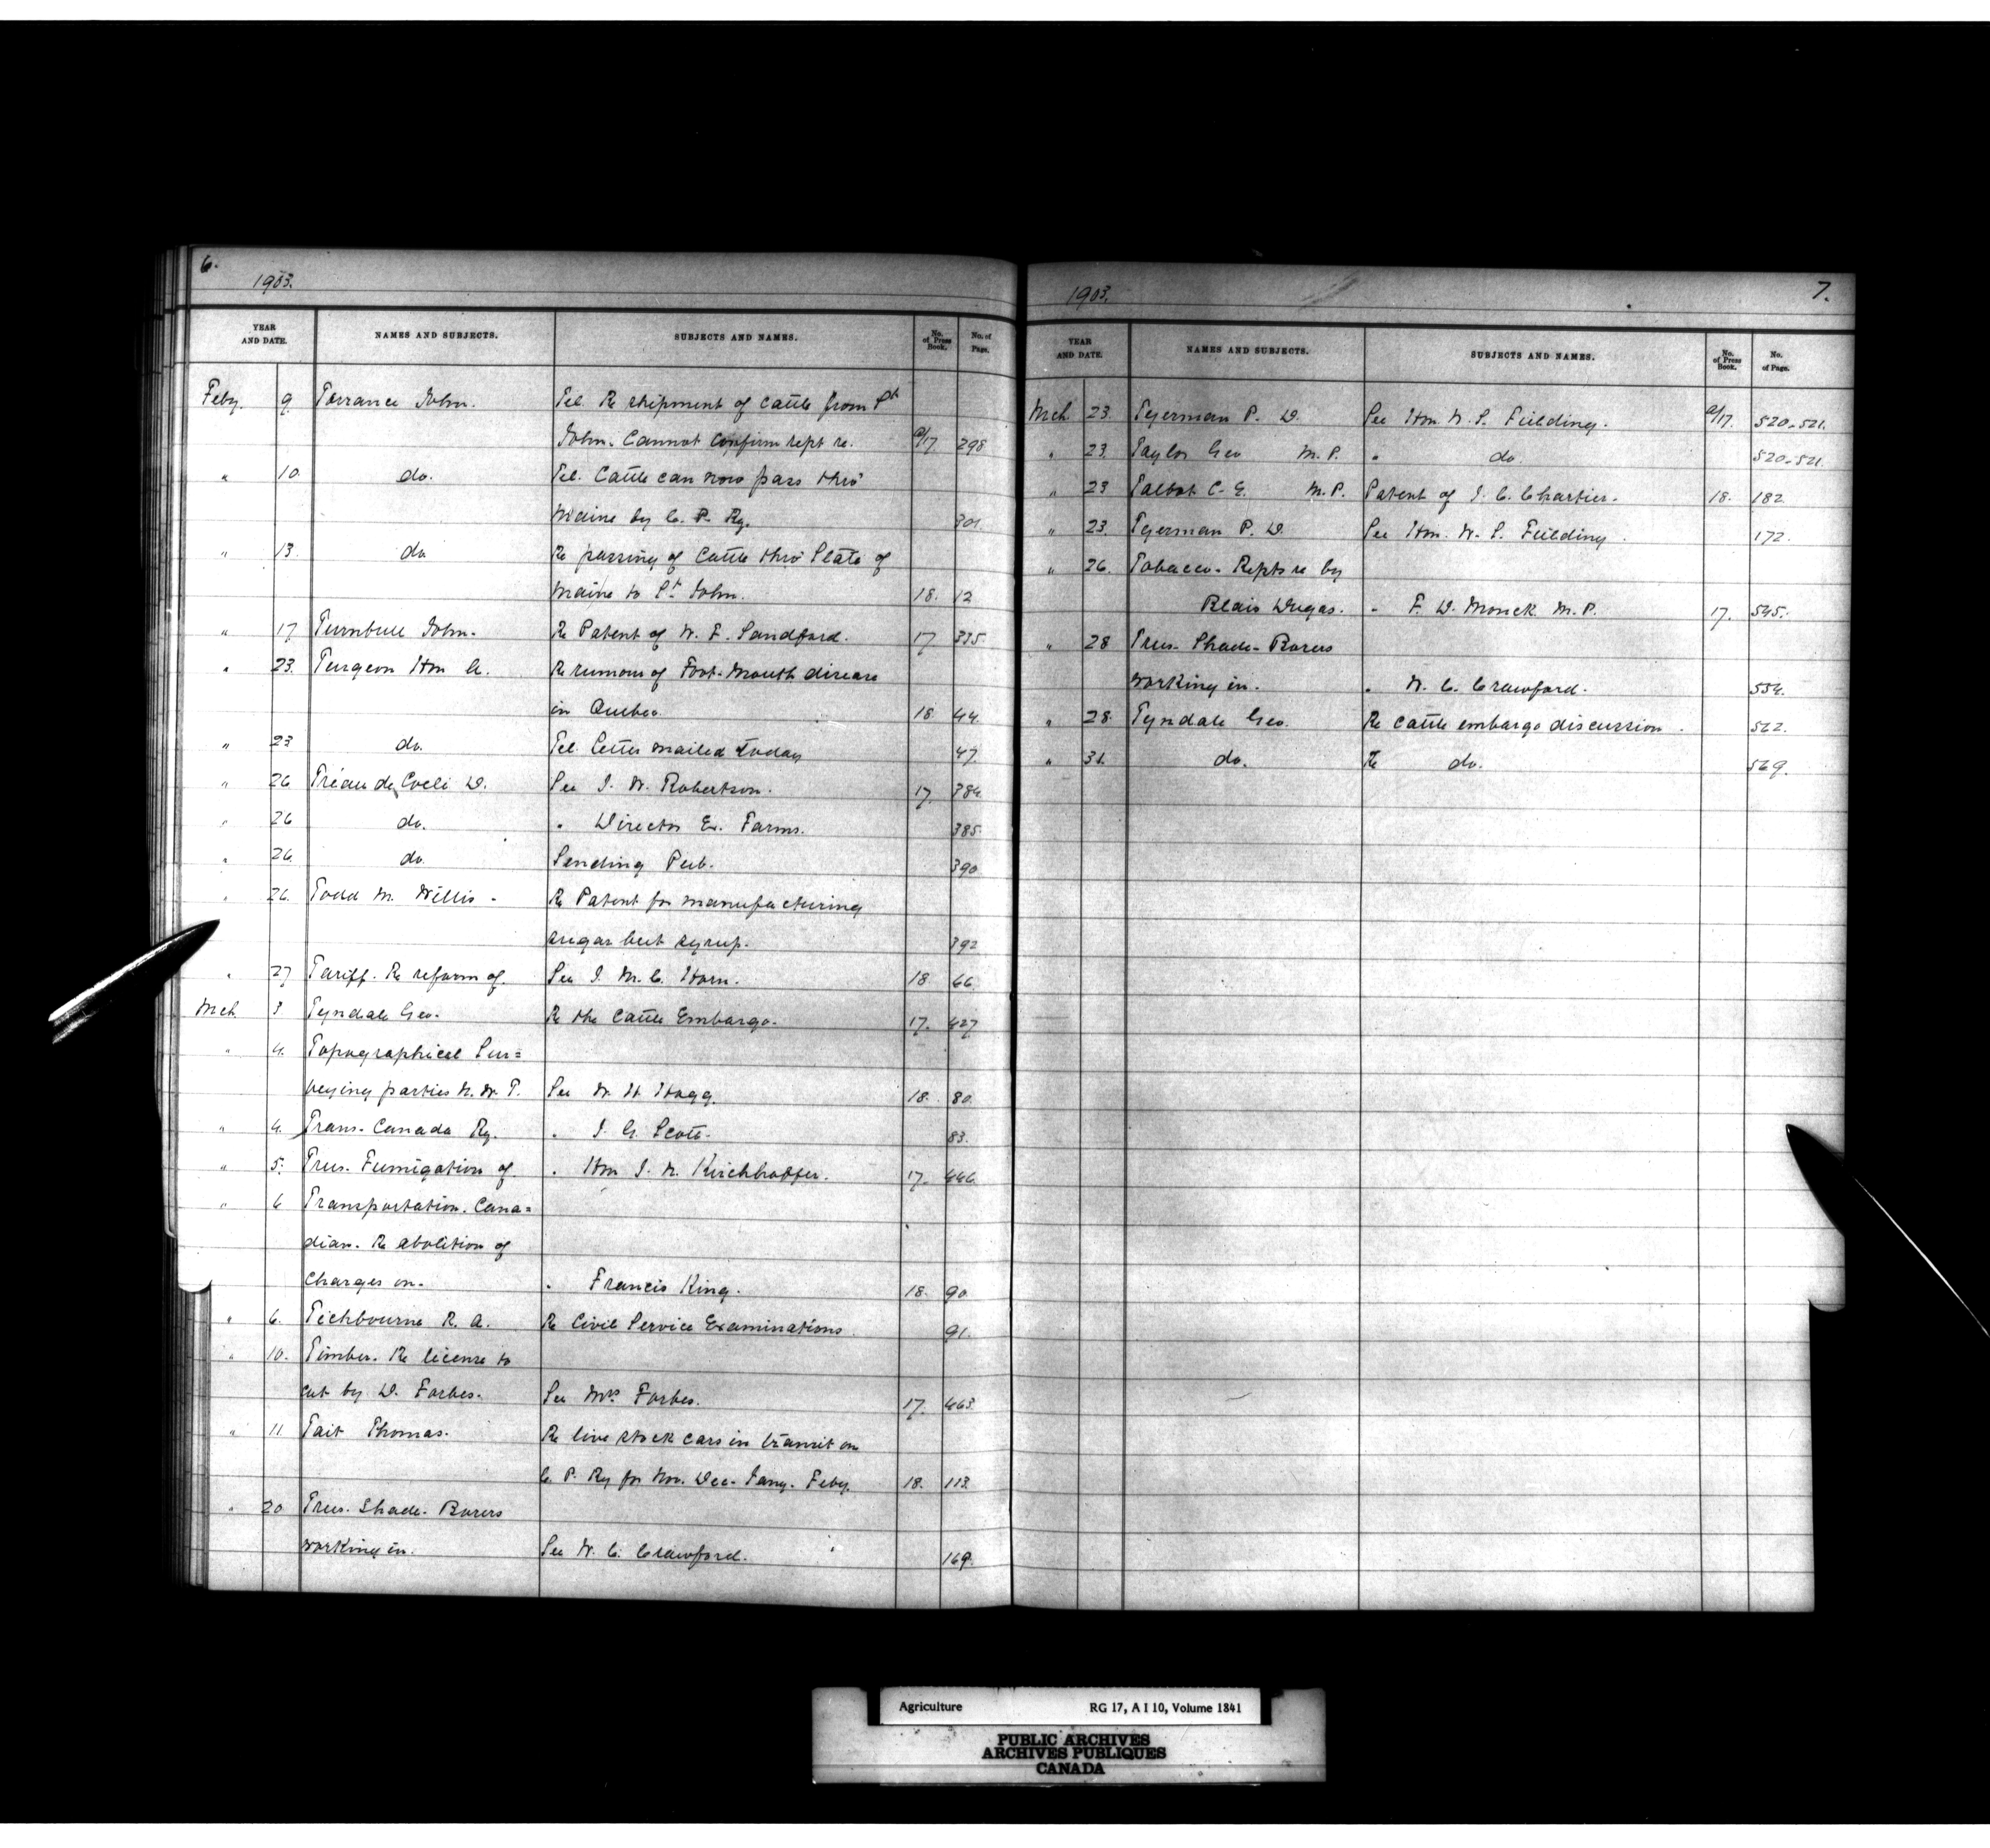 6.
1903.
YEAR AND DATE. NAMES AND SUBJECTS. SUBJECTS AND NAMES. No. of Press Book. No. of Page.
Feby. 9 Torrance John. Tel. Re shipment of cattle from St
John. Cannot confirm rept re. a/17 298
" 10. do. Tel. Cattle can now pass thro'
Maine by C. P. Ry. 301
" 13. do Re passing of Cattle thro' State of
Maine to St. John. 18. 12
" 17 Turnbull John. Re Patent of W. F. Sandford. 17 335
" 23. Turgeon Hon A. Re rumour of Foot-Mouth disease
in Quebec. 18 44.
" 23 do. Tel. Letter mailed today 47.
" 26 Tréau de Coeli D. See J. W. Robertson. 17. 384
" 26 do. " Director Ex. Farms. 385
" 26. do. Sending Pub. 390
" 26. Todd M. Willis - Re Patent for manufacturing
sugar beet syrup. 392
" 27 Tariff. Re reform of. See J. M. C. Horn. 18 66.
Mch 3 Tyndale Geo. Re the Cattle Embargo. 17. 427
" 4. Topographical Sur=
veying parties N. W. T. See W. H. Hogg. 18. 80.
" 4. Trans-Canada Ry. " J. G. Scott. 83.
" 5. Trees. Fumigation of " Hon J. N. Kirchhoffer. 17. 446.
" 6 Transportation. Cana=
dian. Re abolition of
Charges on. " Francis King. 18. 90
" 6. Tichbourne R. A. Re Civil Service Examinations. 91.
" 10. Timber. Re license to
cut by D. Forbes. See Mrs. Forbes. 17. 463.
" 11. Tait Thomas. Re live stock cars in transit on
C. P. Ry for Nov. Dec. Jany. Feby. 18. 113.
" 20 Trees. Shade. Borers
working in. See W. C. Crawford. 169.
1903. 7.
YEAR AND DATE. NAMES AND SUBJECTS. SUBJECTS AND NAMES. No. of Press Book. No. of Page.
Mch 23. Tyerman P. D. See Hon. W. S. Fielding. a/17. 520-521.
" 23. Taylor Geo M.P. " do. 520-521.
" 23 Talbot C. E. M.P. Patent of J. C. Chartier. 18. 182.
" 23. Tyerman P. D. See Hon. W. S. Fielding. 172.
" 26. Tobacco. Repts re by
Blais Dugas. " F. D. Monck. M.P. 17. 545.
" 28 Trees. Shade. Borers
working in. " W. C. Crawford. 554.
" 28. Tyndale Geo. Re Cattle embargo discussion. 562.
" 31. do. Re do. 569.
Agriculture RG 17, A I 10, Volume 1841
PUBLIC ARCHIVES
ARCHIVES PUBLIQUES
CANADA